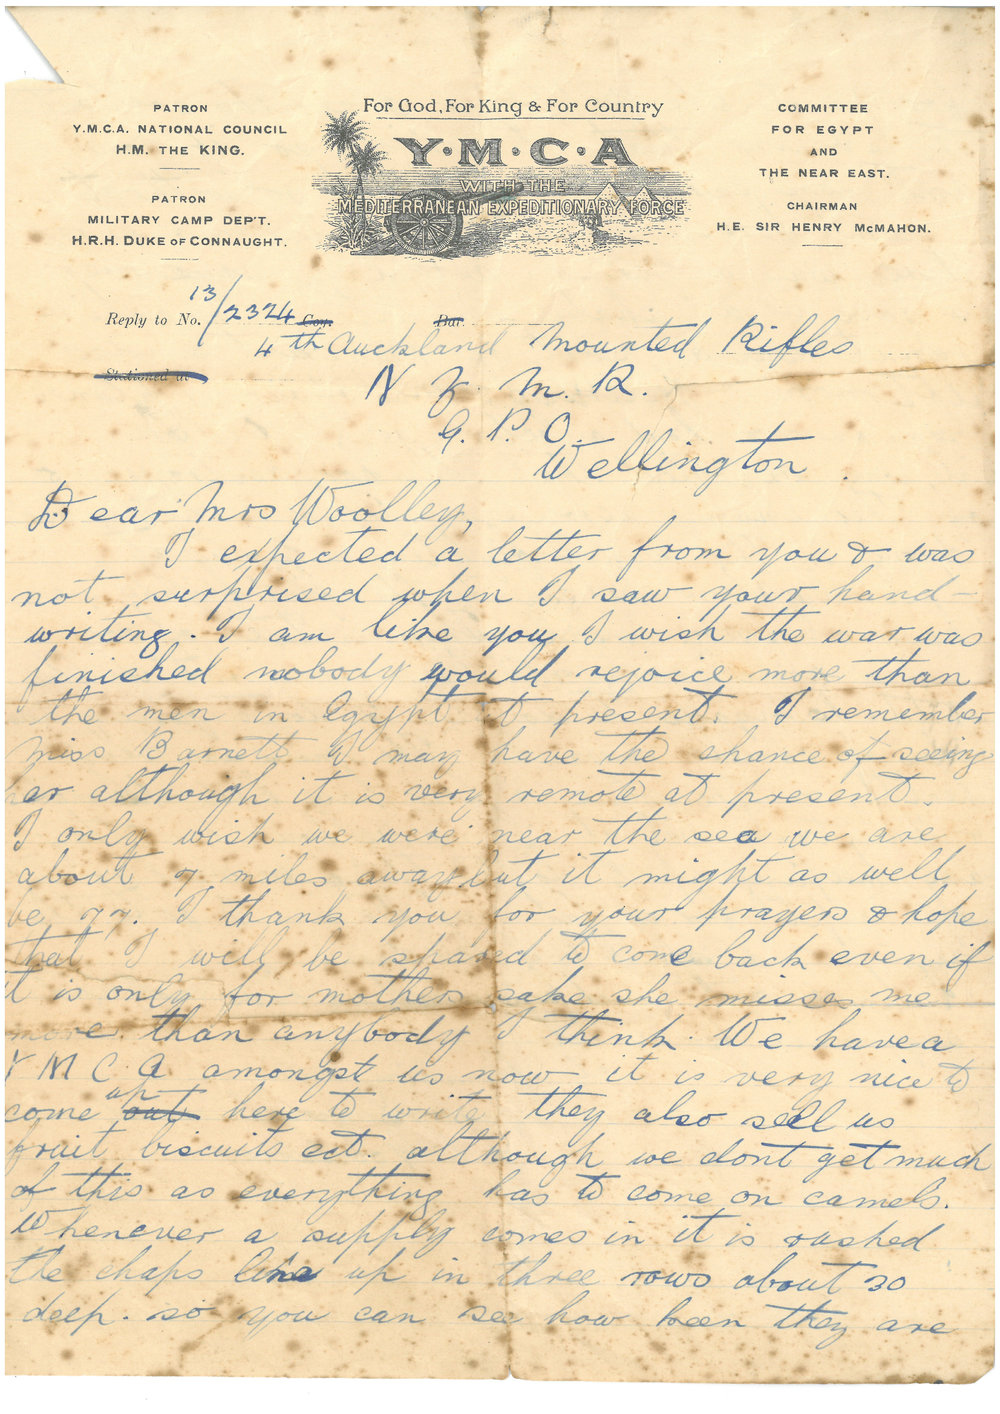 PATRON
Y.M.C.A. NATIONAL COUNCIL
H.M. THE KING.
PATRON
MILITARY CAMP DEP'T.
H.R.H. DUKE OF CONNAUGHT.
For God, For King & For Country
Y·M·C·A
WITH THE
MEDITERRANEAN EXPEDITIONARY FORCE
COMMITTEE
FOR EGYPT
AND
THE NEAR EAST.
CHAIRMAN
H.E. SIR HENRY McMAHON.
Reply to No. 13/2324 Coy. Bat.
4th Auckland Mounted Rifles
Stationed at
N Z. M. R.
G. P. O.
Wellington.
Dear Mrs Woolley,
I expected a letter from you & was
not surprised when I saw your hand-
writing. I am like you I wish the war was
finished nobody would rejoice more than
the men in Egypt at present. I remember
Miss Barnett I may have the chance of seeing
her although it is very remote at present.
I only wish we were near the sea we are
about 7 miles away but it might as well
be 77. I thank you for your prayers & hope
that I will be spared to come back even if
it is only for mothers sake she misses me
more than anybody I think. We have a
Y M C A amongst us now it is very nice to
come up out here to write they also sell us
fruit biscuits ect. although we dont get much
of this as everything has to come on camels.
Whenever a supply comes in it is rushed
the chaps line up in three rows about 30
deep. so you can see how keen they are